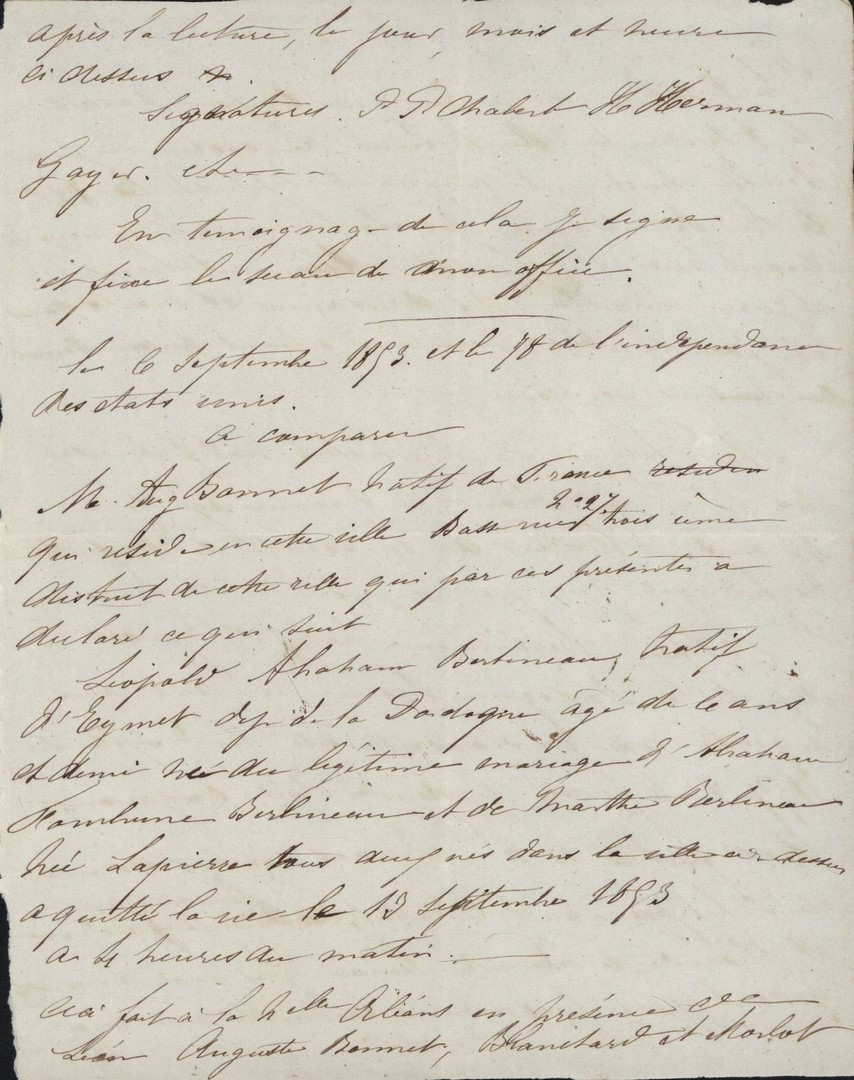 après la lecture, le jour, mois et heure
ci dessus
Signatures. P P Chabert H Herman
Gayer. etc
En temoignage de cela Je signe
et fixe le sceau de mon office.
le 6 Septembre 1853. et le 78 de l'independance
des etats unis.
a comparu
M. Aug Bonnet natif de France residen
qui reside en cette ville Bass rue no 27 trois ieme
district de cette ville qui par ces présentes a
declaré ce qui suit
Léopold Abraham Bertineau, natif
d'Eymet dep de la Dordogne âgé de 6 ans
et demi né du légitime mariage d'Abraham
Bertineau et de Marthe Bertineau
née Lapierre tous deux nés dans la ville ci dessus
a quitté la vie le 13 Septembre 1853
a 4 heures du matin.
ceci fait à la Nelle Orléans en présence de
Léon Auguste Bonnet, Blanchard et Morlot